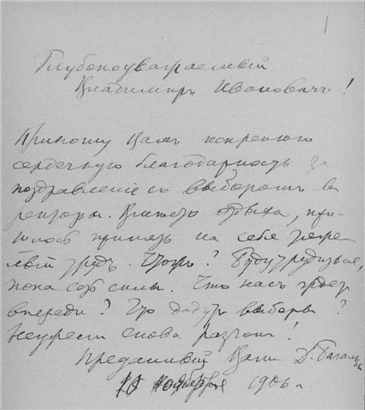 Глубокоуважаемый
Владимиръ Ивановичъ!
Приношу Вамъ искреннюю
сердечную благодарность за
поздравленіе съ выборомъ въ
ректоры. Вмѣсто отдыха, при-
шлось принять на себя тяже-
лый трудъ. Буду трудиться,
пока есть силы. Что насъ ждетъ
впереди? Что дадутъ выборы?
Неужели снова разгонъ!
Преданный Вамъ Д. Багалѣй
10 ноября 1906 г.